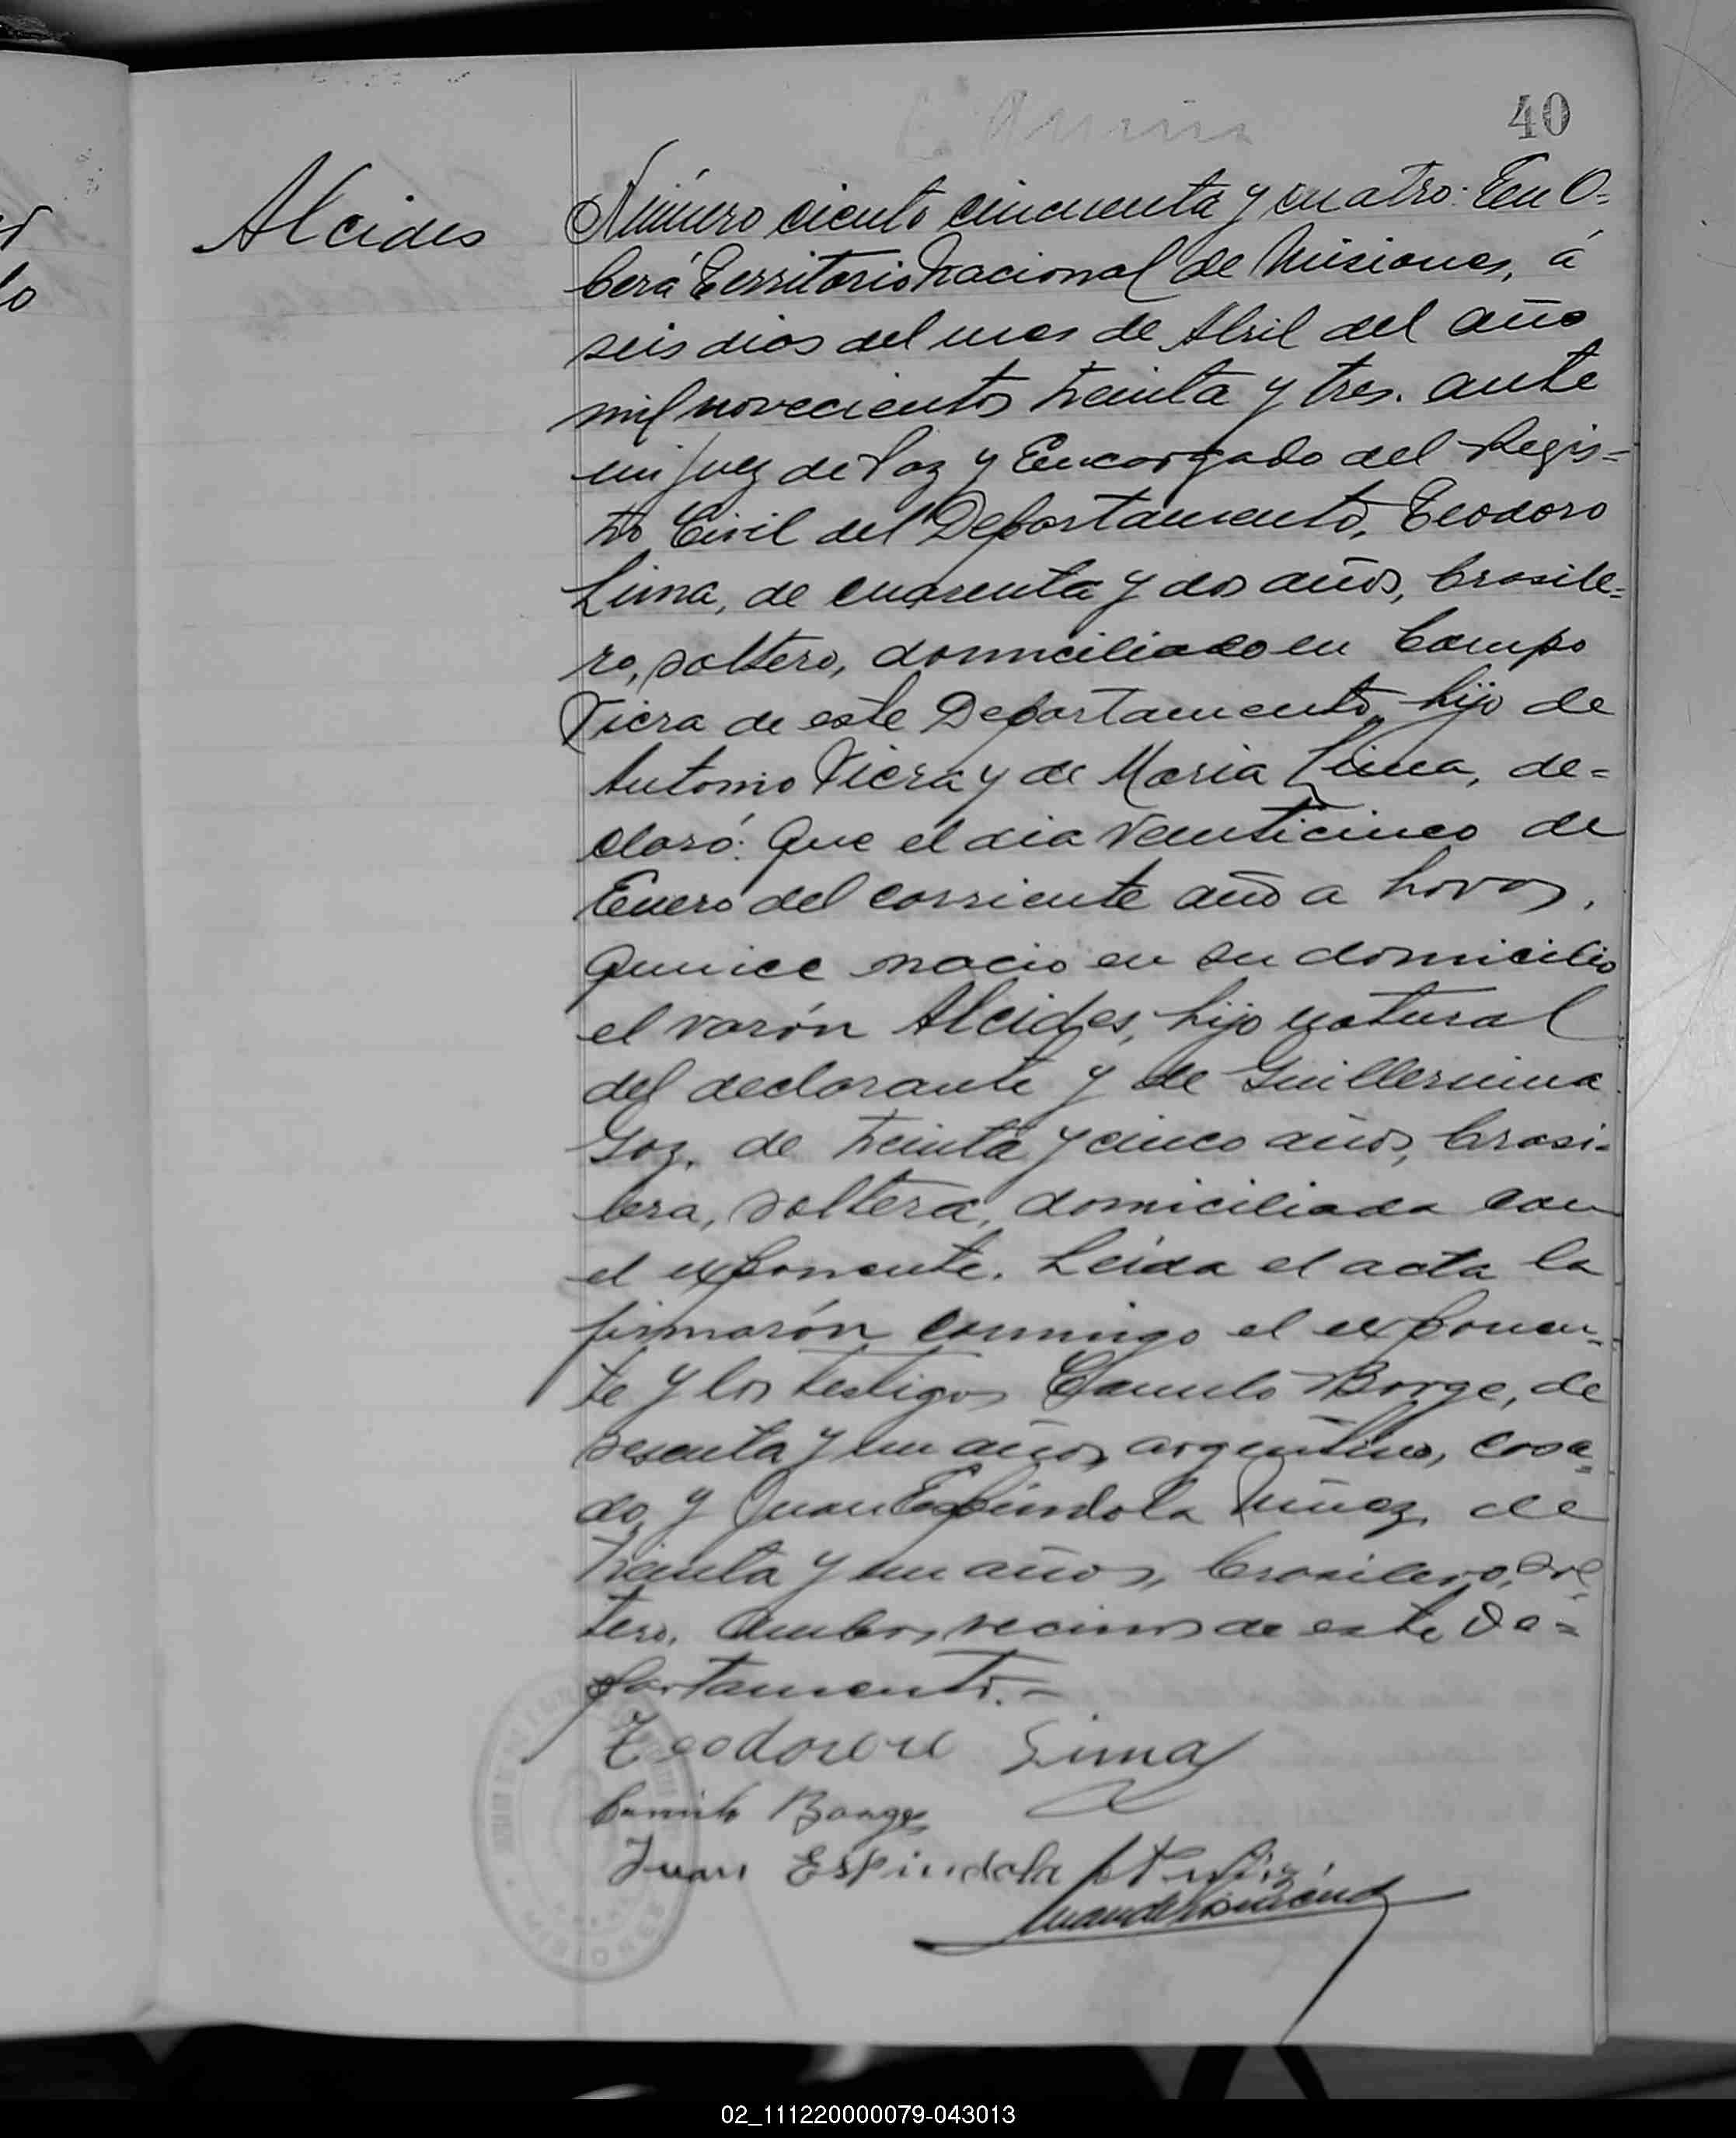 40
Alcides
Número ciento cincuenta y cuatro: En O=
berá Territorio Nacional de Misiones, á
seis dias del mes de Abril del año
mil novecientos treinta y tres. ante
mi Juez de Paz y Encargado del Regis=
tro Civil del Departamento, Teodoro
Lima, de cuarenta y dos años, brasile=
ro, soltero, domiciliado en Campo
Viera de este Departamento, hijo de
Antonio Viera y de Maria Lima, de=
claró: Que el dia veinticinco de
Enero del corriente año a horas,
quince nació en su domicilio
el varón Alcides, hijo natural
del declarante y de Guillermina
Goz, de treinta y cinco años, brasi-
lera, soltera, domiciliada con
el exponente. Leida el acta la
firmarón conmigo el exponen=
te y los testigos Camilo Borge, de
sesenta y un años, argentino, casa=
do, y Juan Espindola Nuñez, de
treinta y un años, brasilero, sol=
tero, ambos vecinos de este De=
partamento.-
Lima
Camilo Borges
Juan Espindola
MISIONES
02_111220000079-043013